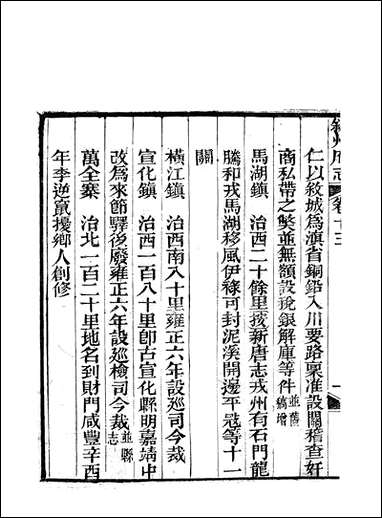 敘州府志 卷十三 一
仁以敘城爲滇省銅鉛入川要路稟准設關稽查奸
商私帶之獘並無額設稅銀解庫等件並舊稿增
馬湖鎮 治西二十餘里按新唐志戎州有石門龍
騰和戎馬湖移風伊祿可封泥溪開邊平寇等十一
關
橫江鎮 治西南八十里雍正六年設巡司今裁
宣化鎮 治西一百八十里卽古宣化縣明嘉靖中
改爲來節驛後廢雍正六年設巡檢司今裁並縣志
萬全寨 治北一百二十里地名到財門咸豐辛酉
年李逆竄擾鄉人創修